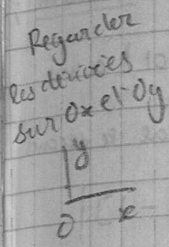 Regarder
les dérivées
sur Ox et Oy
y
O x